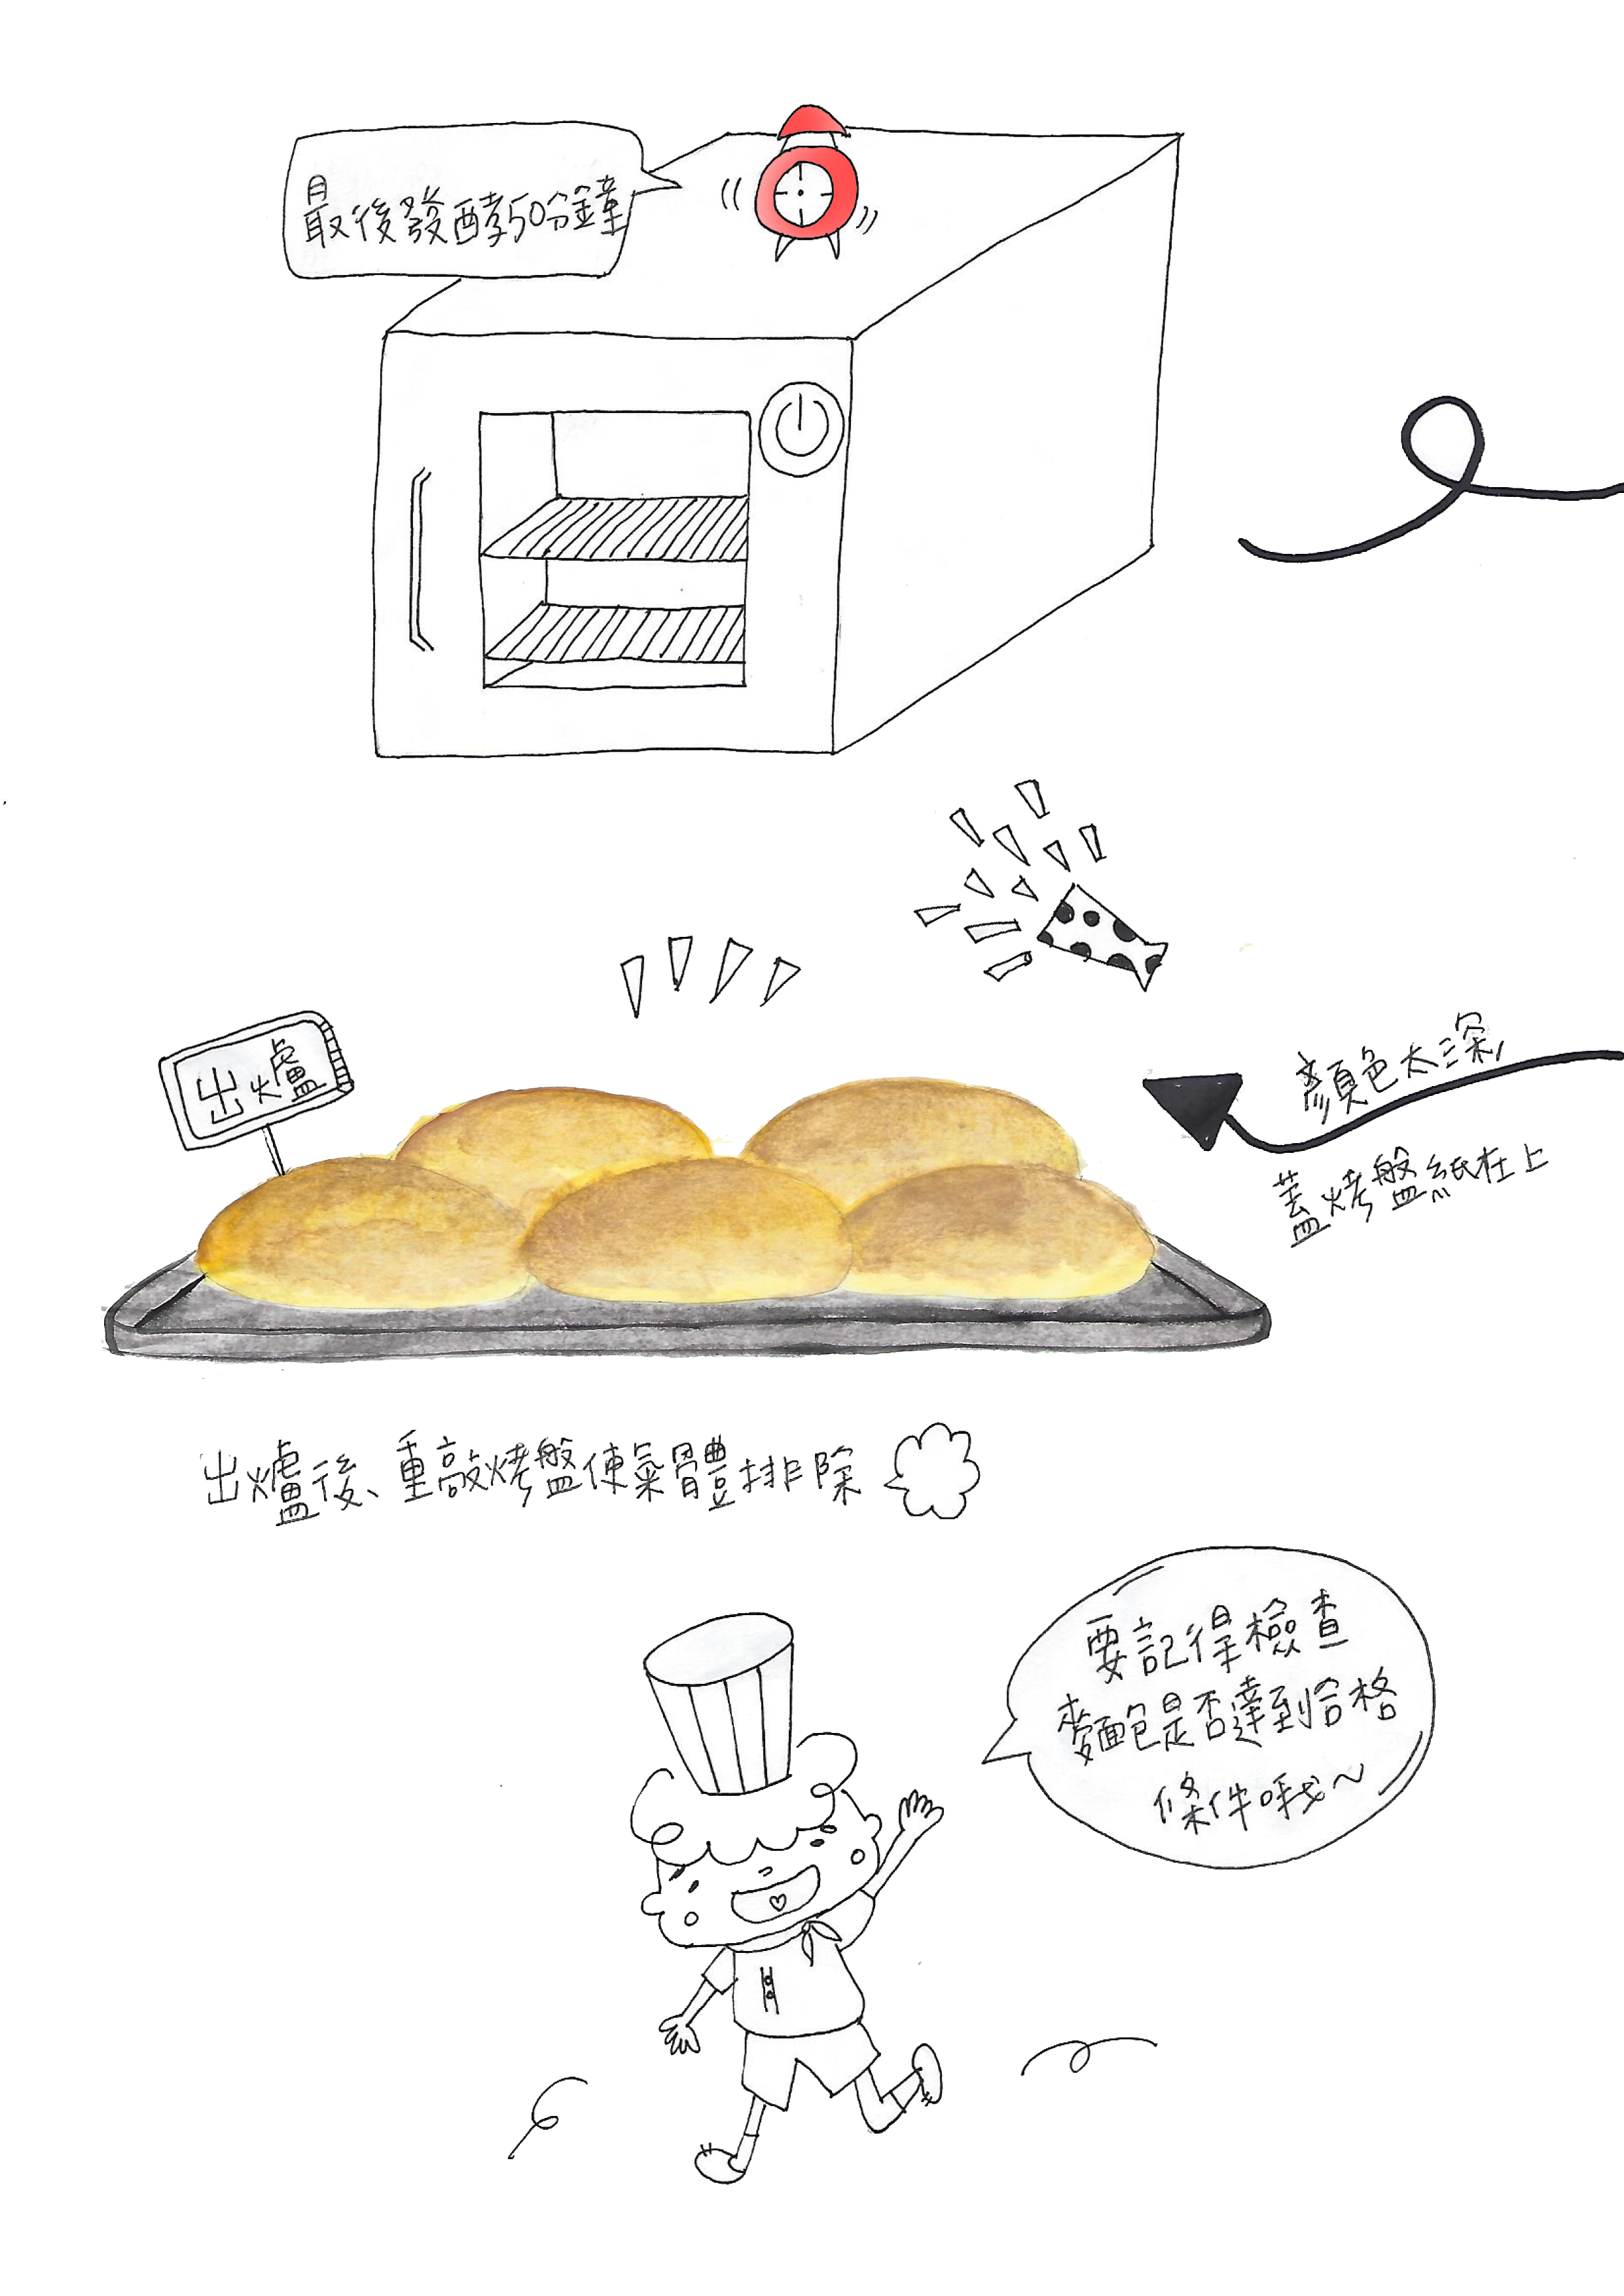 最後發酵50分鐘
出爐
顏色太深,
蓋烤盤紙在上
出爐後、重敲烤盤使氣體排除
要記得檢查
麵包是否達到合格
條件哦~